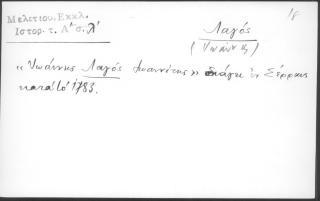 Μελετίου. Εκκλ.
Ιστορ. τ. Α΄ σ. λ΄
Λαγός
(Ιωάννης)
« Ιωάννης Λαγός Ιωαννίτης » διάγει ἐν Σέρραις
κατὰ τὸ 1783.